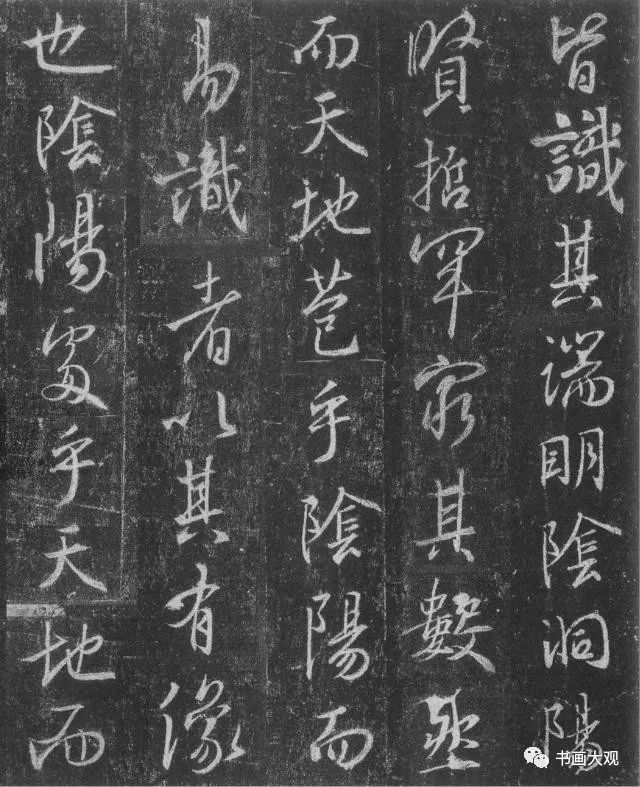 皆識其端明陰洞陽
賢哲罕窮其數然
而天地苞乎陰陽而
易識者以其有像
也陰陽處乎天地而
书画大观